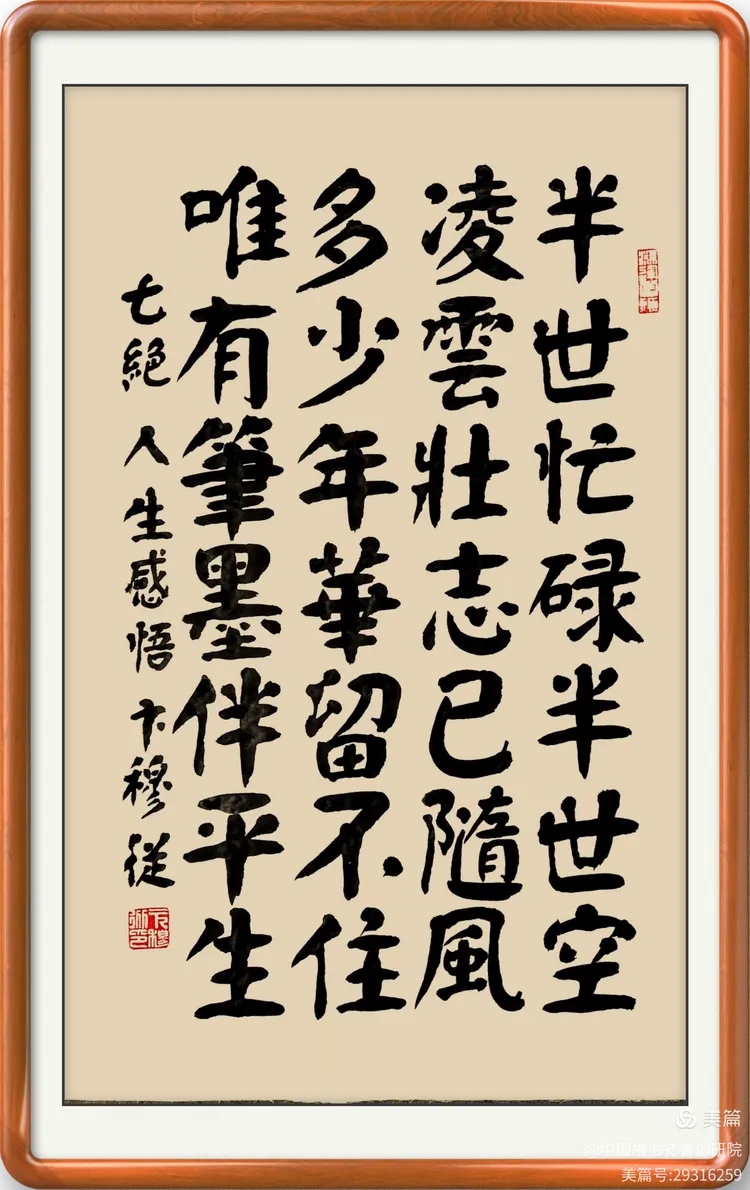 半世忙碌半世空
凌雲壯志已隨風
多少年華留不住
唯有筆墨伴平生
七絕 人生感悟 卞穆從
美篇
美篇号:29316259